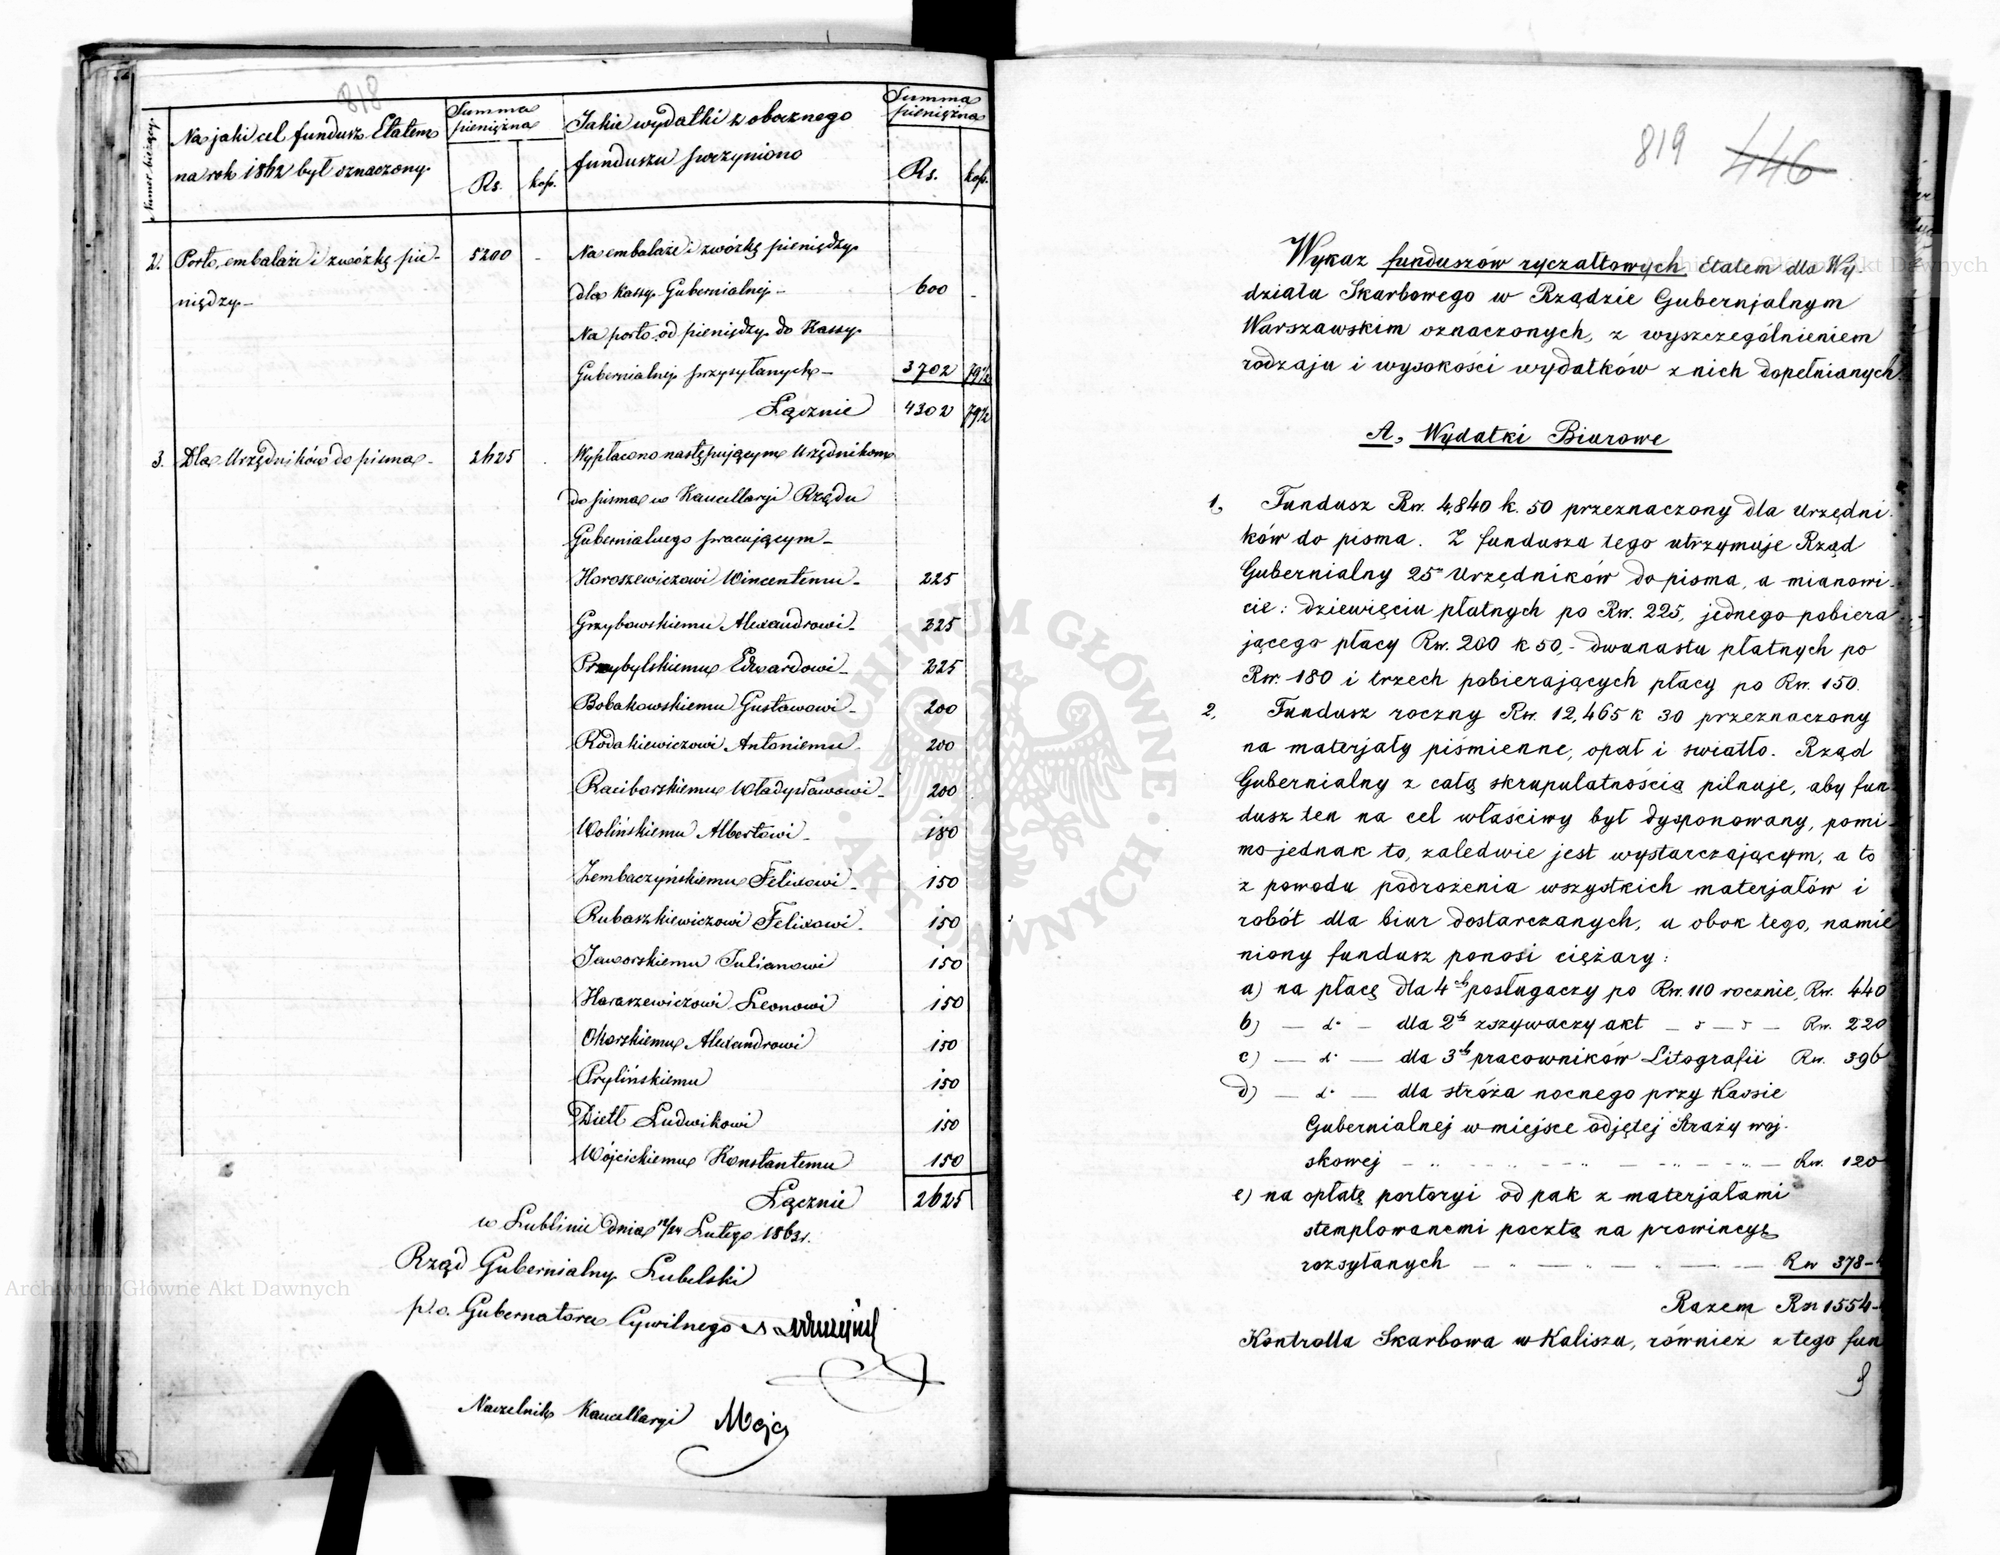 818
Numer bieżący.
Na jaki cel fundusz Etatem
na rok 1862 był oznaczony.
Summa
pieniężna
Rs. kop.
Jakie wydatki z obocznego
funduszu poczyniono
Summa
pieniężna
Rs. kop.
2. Porto, embalaże i zwózkę pie- 5200 - Na embalaże i zwózkę pieniędzy
niędzy- dla Kassy Gubernialnej- 600 -
Na porto od pieniędzy do Kassy
Gubernialnej przysyłanych- 3702 79½
Łącznie 4302 79½
3. Dla Urzędników do pisma- 2625 . Wypłacono następującym Urzędnikom
do pisma w Kancellaryi Rządu
Gubernialnego pracującym-
Horoszewiczowi Wincentemu- 225
Grzybowskiemu Alexandrowi- 225
Przybylskiemu Edwardowi- 225
Bobakowskiemu Gustawowi- 200
Rodakiewiczowi Antoniemu- 200
Raciborskiemu Władysławowi- 200
Wolińskiemu Albertowi- 180
Zembaczyńskiemu Felixowi- 150
Rubaszkiewiczowi Felixowi- 150
Jaworskiemu Julianowi 150
Haraszewiczowi Leonowi 150
Okorskiemu Alexandrowi 150
Prylińskiemu 150
Dietl Ludwikowi 150
Wójcickiemu Konstantemu 150
Łącznie 2625
w Lublinie dnia 12/24 Lutego 1863 r.
Rząd Gubernialny Lubelski
p. o. Gubernatora Cywilnego
Naczelnik Kancellaryi
819 446
Wykaz funduszów ryczałtowych Etatem dla Wy
działu Skarbowego w Rządzie Gubernjalnym
Warszawskim oznaczonych, z wyszczególnieniem
rodzaju i wysokości wydatków z nich dopełnianych.
A, Wydatki Biurowe
1, Fundusz Rsr. 4,840 k. 50 przeznaczony dla Urzędni
ków do pisma. Z funduszu tego utrzymuje Rząd
Gubernialny 25u Urzędników do pisma, a mianowi-
cie: dziewięciu płatnych po Rsr. 225, jednego pobiera
jącego płacy Rsr. 200 k 50,- dwunastu płatnych po
Rsr. 180 i trzech pobierających płacy po Rsr. 150.
2, Fundusz roczny Rsr. 12,465 k 30 przeznaczony
na materjały piśmienne, opał i swiatło. Rząd
Gubernialny z całą skrupulatnością pilnuje, aby fun-
dusz ten na cel właściwy był dysponowany, pomi-
mo jednak to, zaledwie jest wystarczającym, a to
z powodu podrożenia wszystkich materjałów i
robót dla biur dostarczanych, a obok tego, namie
niony fundusz ponosi ciężary:
a) na płacę dla 4ch posługaczy po Rsr. 110 rocznie, Rsr. 440
b) — d° — dla 2ch zszywaczy akt — " — " — Rsr. 220
c) — d° — dla 3ch pracowników Litografii Rsr. 396
d) — d° — dla stróża nocnego przy Kassie
Gubernialnej w miejsce odjętej Straży woj-
skowej — " — " — " — Rsr. 120
e) na opłatę portoryi od pak z materjałami
stemplowanemi pocztą na prowincyę
rozsyłanych — — — — Rsr 378-
Razem Rsr 1554-
Kontrolla Skarbowa w Kaliszu, również z tego fun
Archiwum Główne Akt Dawnych
Archiwum Główne Akt Dawnych
ARCHIWUM GŁÓWNE · AKT DAWNYCH ·